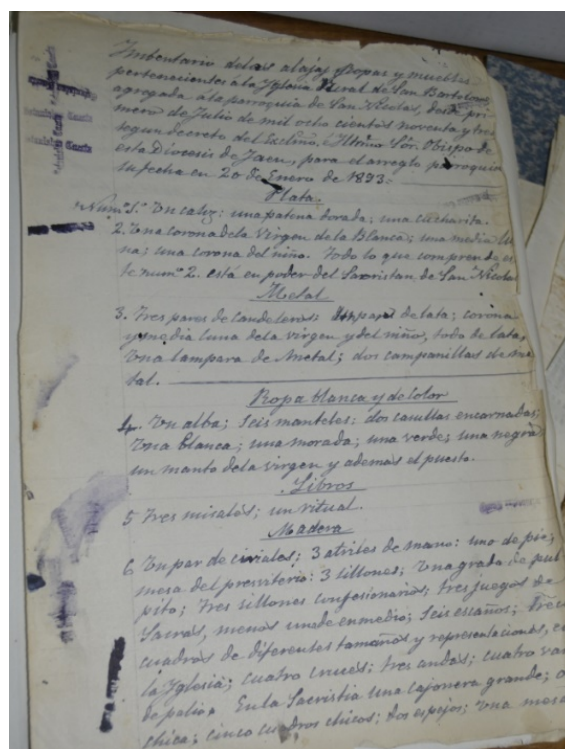 Imbentario de las alajas, Ropas y muebles
pertenecientes á la Yglesia Rural de San Bartolomé,
agregada á la parroquia de San Nicolas, desde pri-
mero de Julio de mil ocho cientos noventa y tres
segun decreto del Exclmo. é Iltmo Sór. Obispo de
esta Diocesis de Jaen, para el arreglo parroquial
su fecha en 20 de Enero de 1893.
Plata.
Numº 1º Un caliz: una patena dorada; una cucharita.
2. Una corona de la Virgen de la Blanca; una media lu-
na; una corona del niño. Todo lo que comprende es-
te numº 2. está en poder del Sacristan de San Nicolas
Metal
3. Tres pares de candeleros: Un par de lata; corona
y media luna de la virgen y del niño, todo de lata;
Una lampara de metal; dos campanillas de me-
tal.
Ropa blanca y de color
4. Un alba; Seis manteles: dos casullas encarnadas;
Una blanca; una morada; una verde; una negra
un manto de la virgen y además el puesto.
Libros
5 Tres misales; un ritual.
Madera
6 Un par de ciriales; 3 atriles de mano: uno de pie;
mesa del presviterio: 3 sillones; Una grada de pul-
pito; Tres sillones confesionarios; tres juegos de
Sacras, menos una de en medio; Seis escaños; Trece
cuadros de diferentes tamaños y representaciones, en
la Yglesia; cuatro cruces; tres andas; cuatro varas
de palio. En la Sacristia una cajonera grande;
chica; cinco cuadros chicos; dos espejos; Una mesa